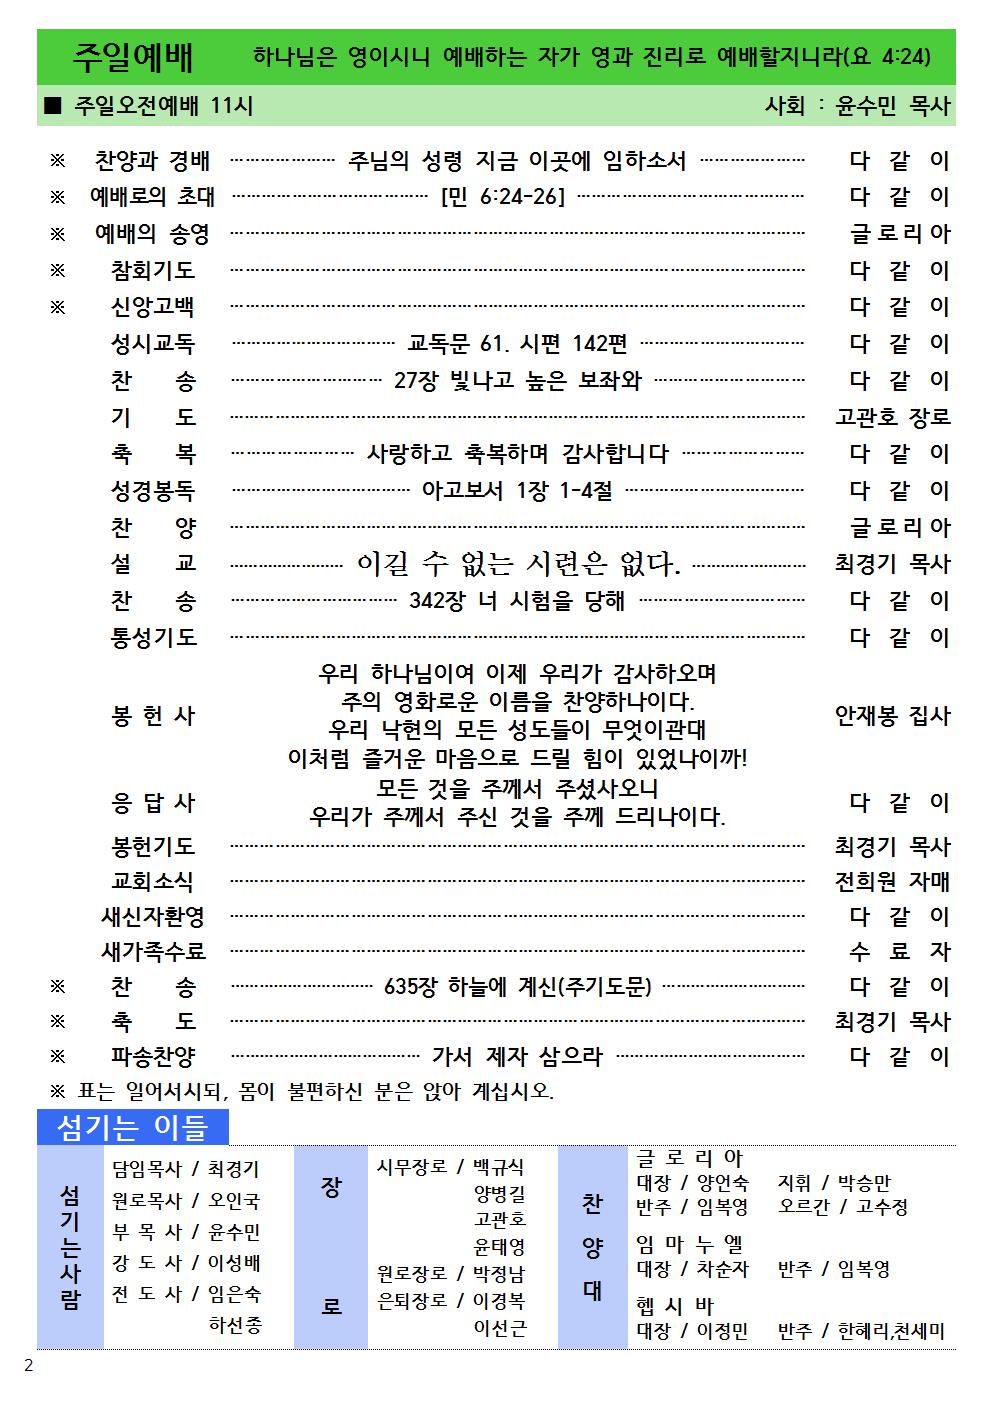 주일예배 하나님은 영이시니 예배하는 자가 영과 진리로 예배할지니라(요 4:24)
■ 주일오전예배 11시 사회 : 윤수민 목사
※ 찬양과 경배 ………………… 주님의 성령 지금 이곳에 임하소서 ………………… 다 같 이
※ 예배로의 초대 ………………… [민 6:24-26] ………………… 다 같 이
※ 예배의 송영 ………………… 글로리아
※ 참회기도 ………………… 다 같 이
※ 신앙고백 ………………… 다 같 이
성시교독 ………………… 교독문 61. 시편 142편 ………………… 다 같 이
찬 송 ………………… 27장 빛나고 높은 보좌와 ………………… 다 같 이
기 도 ………………… 고관호 장로
축 복 ………………… 사랑하고 축복하며 감사합니다 ………………… 다 같 이
성경봉독 ………………… 야고보서 1장 1-4절 ………………… 다 같 이
찬 양 ………………… 글로리아
설 교 ………………… 이길 수 없는 시련은 없다. ………………… 최경기 목사
찬 송 ………………… 342장 너 시험을 당해 ………………… 다 같 이
통성기도 ………………… 다 같 이
우리 하나님이여 이제 우리가 감사하오며
주의 영화로운 이름을 찬양하나이다.
봉 헌 사 우리 낙현의 모든 성도들이 무엇이관대 안재봉 집사
이처럼 즐거운 마음으로 드릴 힘이 있었나이까!
모든 것을 주께서 주셨사오니
응 답 사 우리가 주께서 주신 것을 주께 드리나이다. 다 같 이
봉헌기도 ………………… 최경기 목사
교회소식 ………………… 전희원 자매
새신자환영 ………………… 다 같 이
새가족수료 ………………… 수 료 자
※ 찬 송 ………………… 635장 하늘에 계신(주기도문) ………………… 다 같 이
※ 축 도 ………………… 최경기 목사
※ 파송찬양 ………………… 가서 제자 삼으라 ………………… 다 같 이
※ 표는 일어서시되, 몸이 불편하신 분은 앉아 계십시오.
섬기는 이들
섬기는사람
담임목사 / 최경기
원로목사 / 오인국
부 목 사 / 윤수민
강 도 사 / 이성배
전 도 사 / 임은숙
하선종
장 로
시무장로 / 백규식
양병길
고관호
윤태영
원로장로 / 박정남
은퇴장로 / 이경복
이선근
찬양대
글 로 리 아
대장 / 양언숙 지휘 / 박승만
반주 / 임복영 오르간 / 고수정
임 마 누 엘
대장 / 차순자 반주 / 임복영
헵 시 바
대장 / 이정민 반주 / 한혜리,천세미
2